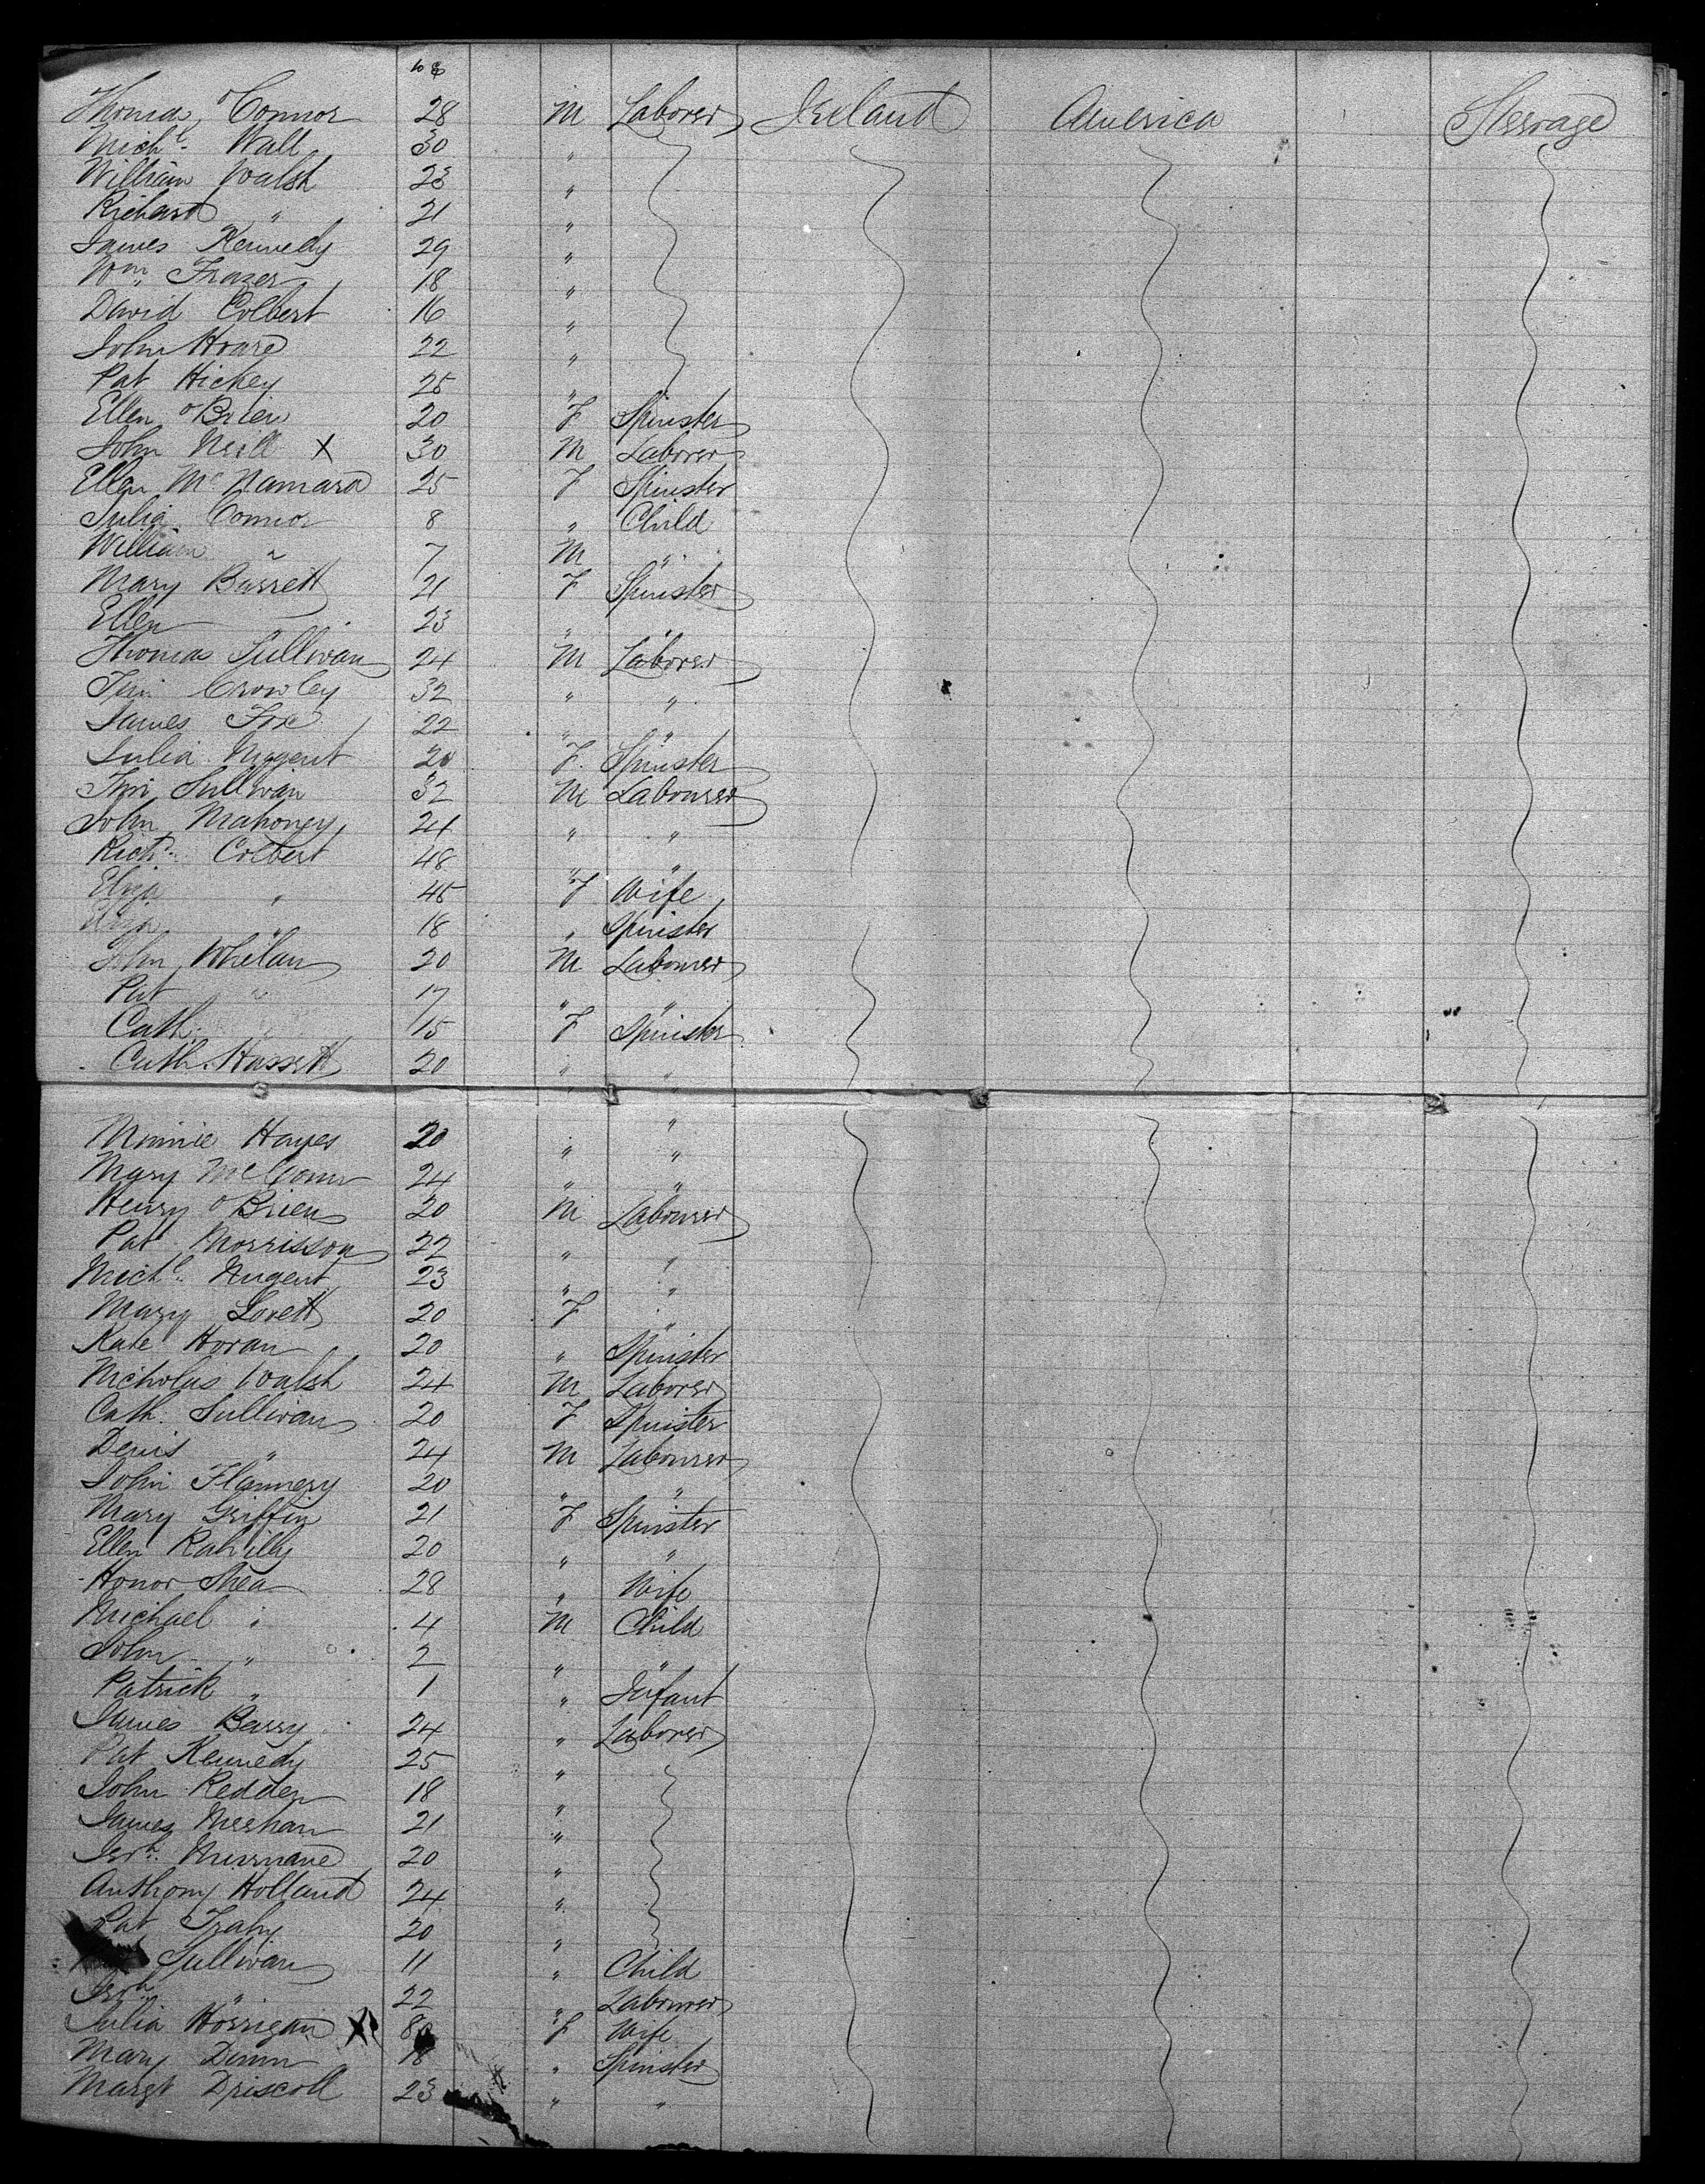 Thomas O'Connor 28 M Laborer Ireland America Steerage
Michl. Wall 30 "
William Walsh 23 "
Richard " 21 "
James Kennedy 29 "
Wm. Frazer 18 "
David Colbert 16 "
John Hoare 22 "
Pat Hickey 25 "
Ellen O'Brien 20 F Spinster
John Neill X 30 M Laborer
Ellen McNamara 25 F Spinster
Julia Connor 8 " Child
William " 7 M "
Mary Barrett 21 F Spinster
Ellen 23 " "
Thomas Sullivan 24 M Laborer
Tim Crowley 32 " "
James Fox 22 " "
Julia Nugent 20 F Spinster
Tim Sullivan 32 M Labourer
John Mahoney 24 " "
Richd. Colbert 48 " "
Eliza " 45 F Wife
Eliza " 18 " Spinster
John Whelan 20 M Labourer
Pat " 17 " "
Cath. " 15 F Spinster
Cath. Hassett 20 " "
Minnie Hayes 20 " "
Mary 24 " "
Henry O'Brien 20 M Labourer
Pat Morrisson 22 " "
Michl. Nugent 23 " "
Mary Lovett 20 F "
Kate Horan 20 " Spinster
Nicholas Walsh 24 M Laborer
Cath. Sullivan 20 F Spinster
Denis " 24 M Labourer
John Flannery 20 " "
Mary Griffin 21 F Spinster
Ellen Rahilly 20 " "
Honor Shea 28 " Wife
Michael " 4 M Child
John " 2 " "
Patrick " 1 " Infant
James Barry 24 " Laborer
Pat Kennedy 25 "
John Redden 18 "
James Meehan 21 "
Jerh. Murnane 20 "
Anthony Holland 24 "
Pat 20 "
Sullivan 11 " Child
Jerh. " 22 " Labourer
Julia Horrigan X F Wife
Mary Dunn 18 " Spinster
Margt Driscoll 23 " "